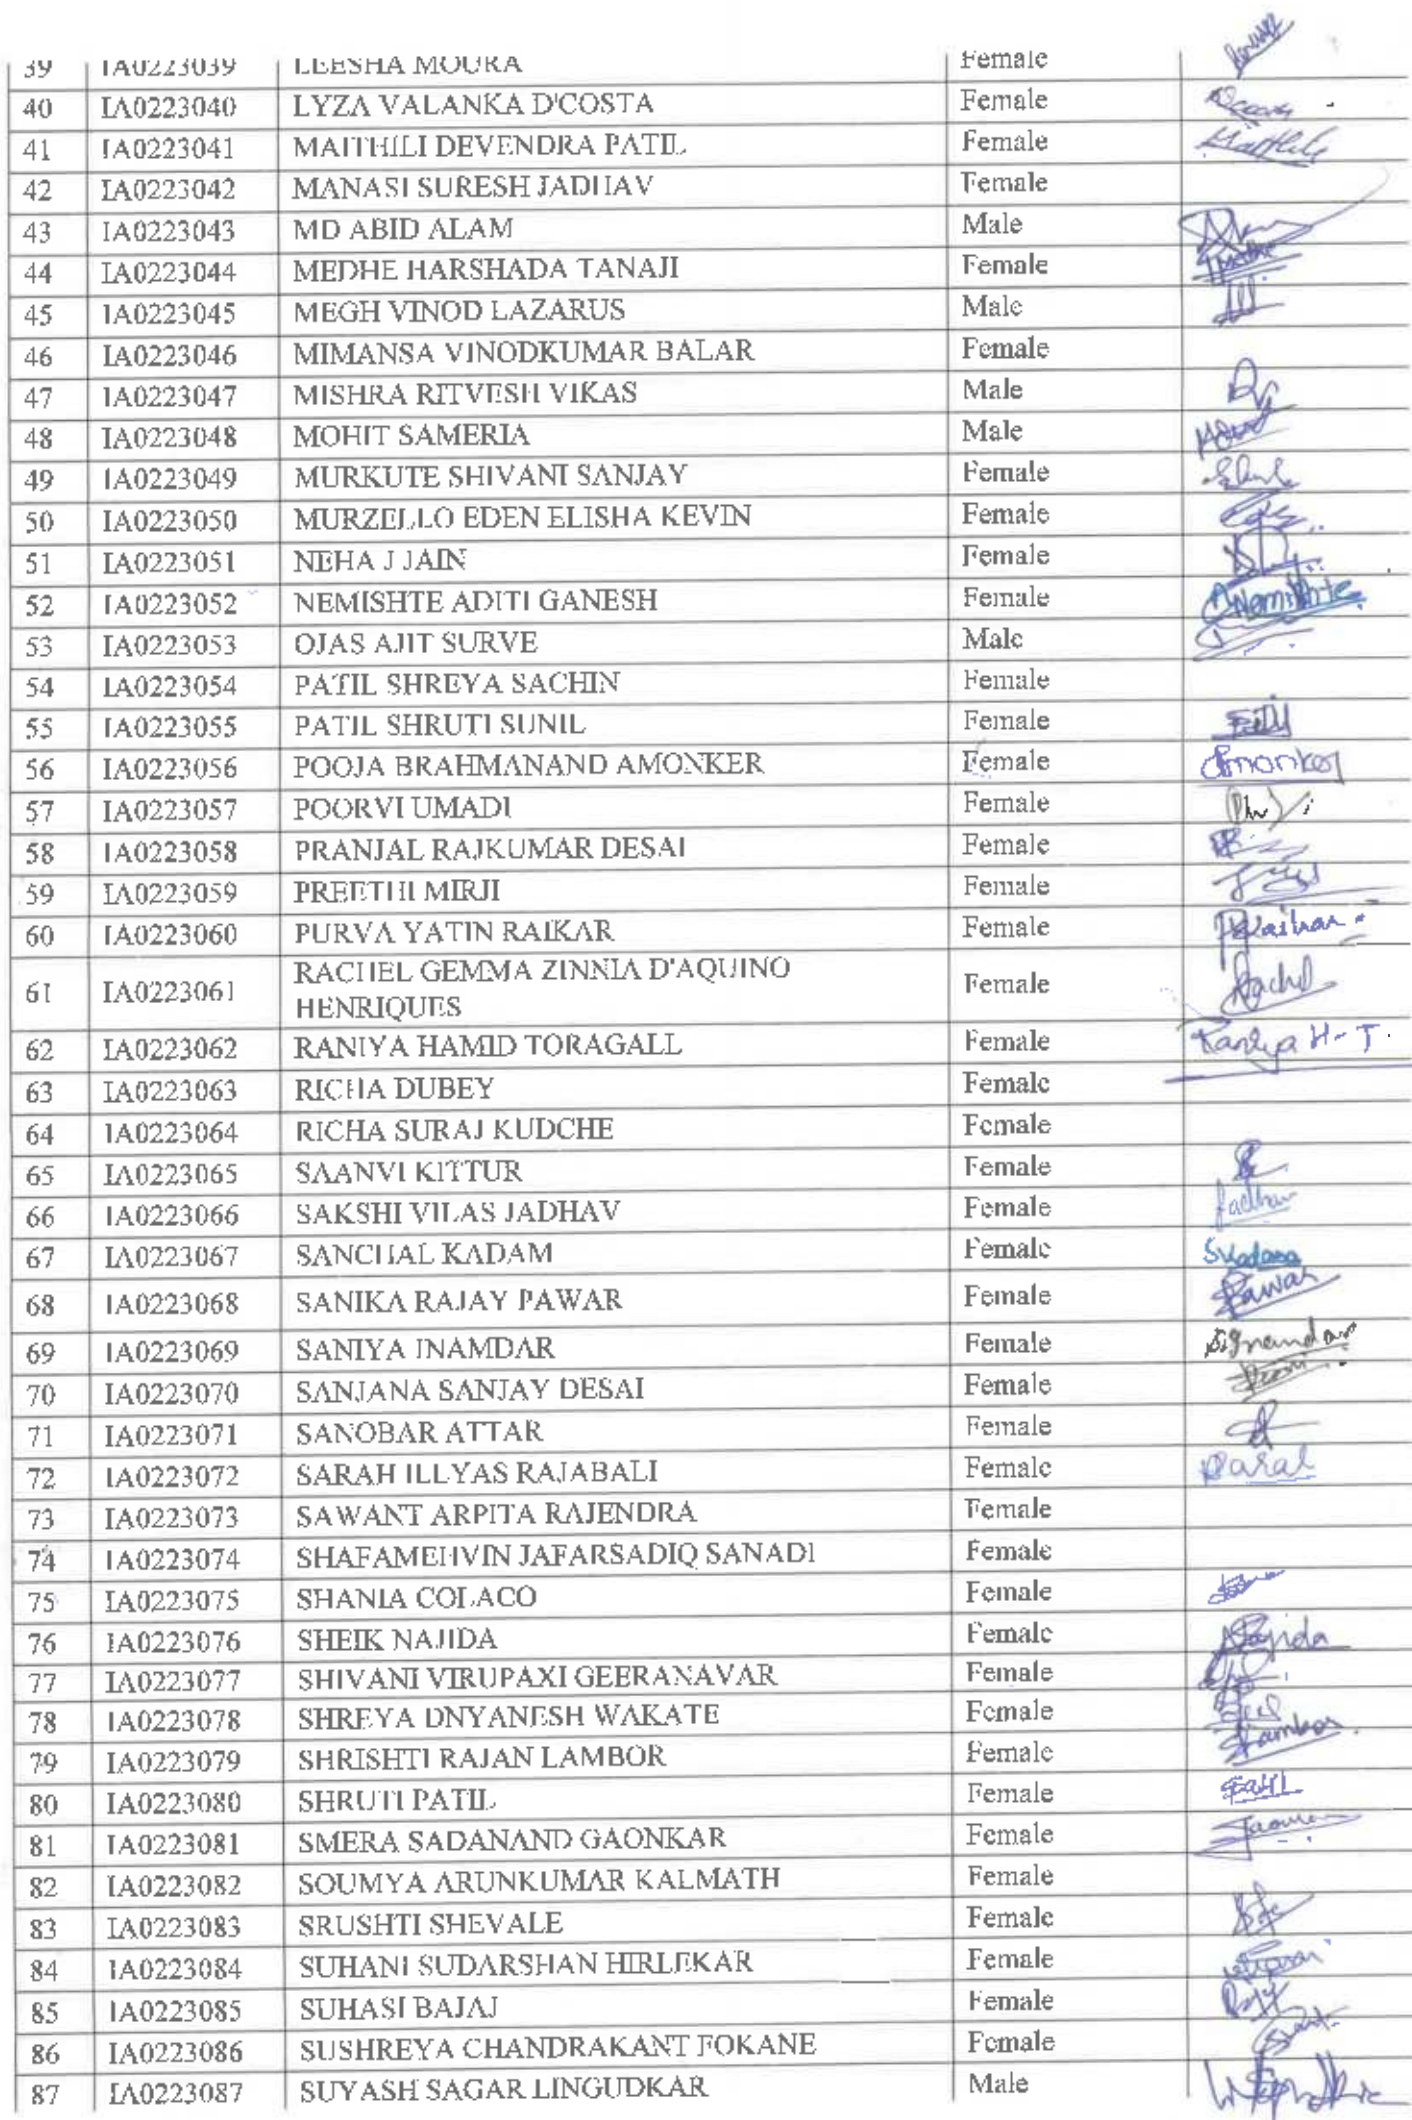 39 IA0223039 LEESHA MOURA Female
40 IA0223040 LYZA VALANKA D'COSTA Female
41 IA0223041 MAITHILI DEVENDRA PATIL Female
42 IA0223042 MANASI SURESH JADHAV Female
43 IA0223043 MD ABID ALAM Male
44 IA0223044 MEDHE HARSHADA TANAJI Female Medhe
45 IA0223045 MEGH VINOD LAZARUS Male
46 IA0223046 MIMANSA VINODKUMAR BALAR Female
47 IA0223047 MISHRA RITVESH VIKAS Male
48 IA0223048 MOHIT SAMERIA Male
49 IA0223049 MURKUTE SHIVANI SANJAY Female
50 IA0223050 MURZELLO EDEN ELISHA KEVIN Female
51 IA0223051 NEHA J JAIN Female
52 IA0223052 NEMISHTE ADITI GANESH Female
53 IA0223053 OJAS AJIT SURVE Male
54 IA0223054 PATIL SHREYA SACHIN Female
55 IA0223055 PATIL SHRUTI SUNIL Female
56 IA0223056 POOJA BRAHMANAND AMONKER Female Amonker
57 IA0223057 POORVI UMADI Female
58 IA0223058 PRANJAL RAJKUMAR DESAI Female
59 IA0223059 PREETHI MIRJI Female
60 IA0223060 PURVA YATIN RAIKAR Female
61 IA0223061 RACHEL GEMMA ZINNIA D'AQUINO Female Rachel
HENRIQUES
62 IA0223062 RANIYA HAMID TORAGALL Female Raniya H-T.
63 IA0223063 RICHA DUBEY Female
64 IA0223064 RICHA SURAJ KUDCHE Female
65 IA0223065 SAANVI KITTUR Female
66 IA0223066 SAKSHI VILAS JADHAV Female Jadhav
67 IA0223067 SANCHAL KADAM Female SKadam
68 IA0223068 SANIKA RAJAY PAWAR Female Pawar
69 IA0223069 SANIYA INAMDAR Female
70 IA0223070 SANJANA SANJAY DESAI Female
71 IA0223071 SANOBAR ATTAR Female
72 IA0223072 SARAH ILLYAS RAJABALI Female Sarah
73 IA0223073 SAWANT ARPITA RAJENDRA Female
74 IA0223074 SHAFAMEHVIN JAFARSADIQ SANADI Female
75 IA0223075 SHANIA COLACO Female
76 IA0223076 SHEIK NAJIDA Female Najida
77 IA0223077 SHIVANI VIRUPAXI GEERANAVAR Female
78 IA0223078 SHREYA DNYANESH WAKATE Female
79 IA0223079 SHRISHTI RAJAN LAMBOR Female Lambor
80 IA0223080 SHRUTI PATIL Female
81 IA0223081 SMERA SADANAND GAONKAR Female
82 IA0223082 SOUMYA ARUNKUMAR KALMATH Female
83 IA0223083 SRUSHTI SHEVALE Female
84 IA0223084 SUHANI SUDARSHAN HIRLEKAR Female
85 IA0223085 SUHASI BAJAJ Female
86 IA0223086 SUSHREYA CHANDRAKANT FOKANE Female
87 IA0223087 SUYASH SAGAR LINGUDKAR Male